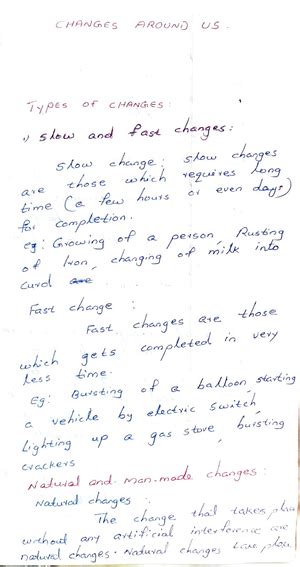 CHANGES AROUND US.
TYPES OF CHANGES:
1) Slow and fast changes:
Slow change: slow changes
are those which requires long
time (a few hours or even days)
for completion.
eg: Growing of a person, Rusting
of Iron, changing of milk into
curd
Fast change :
Fast changes are those
which gets completed in very
less time.
Eg: Bursting of a balloon, starting
a vehicle by electric switch,
lighting up a gas stove, bursting
crackers
Natural and man-made changes:
Natural changes :
The change that takes place
without any artificial interference are
natural changes. Natural changes take place